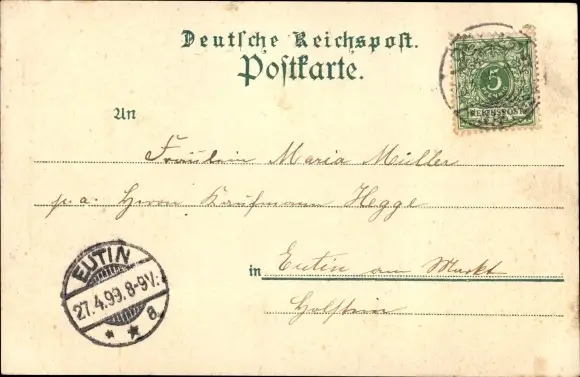 Deutsche Reichspost.
Postkarte.
5
REICHSPOST
An
Fräulein Maria Müller
p. a. Herrn Kaufmann Hegge
in Eutin am Markt
Holstein
EUTIN
27.4.99. 8-9V.
* * a.